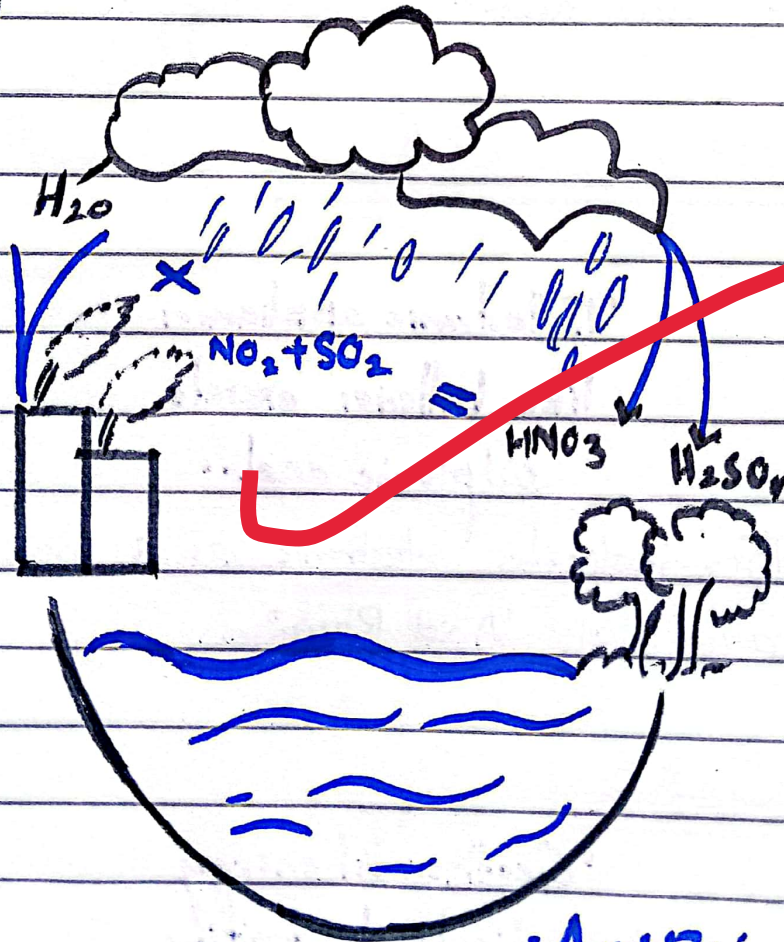 H2O
×
NO2+SO2
=
HNO3
H2SO4